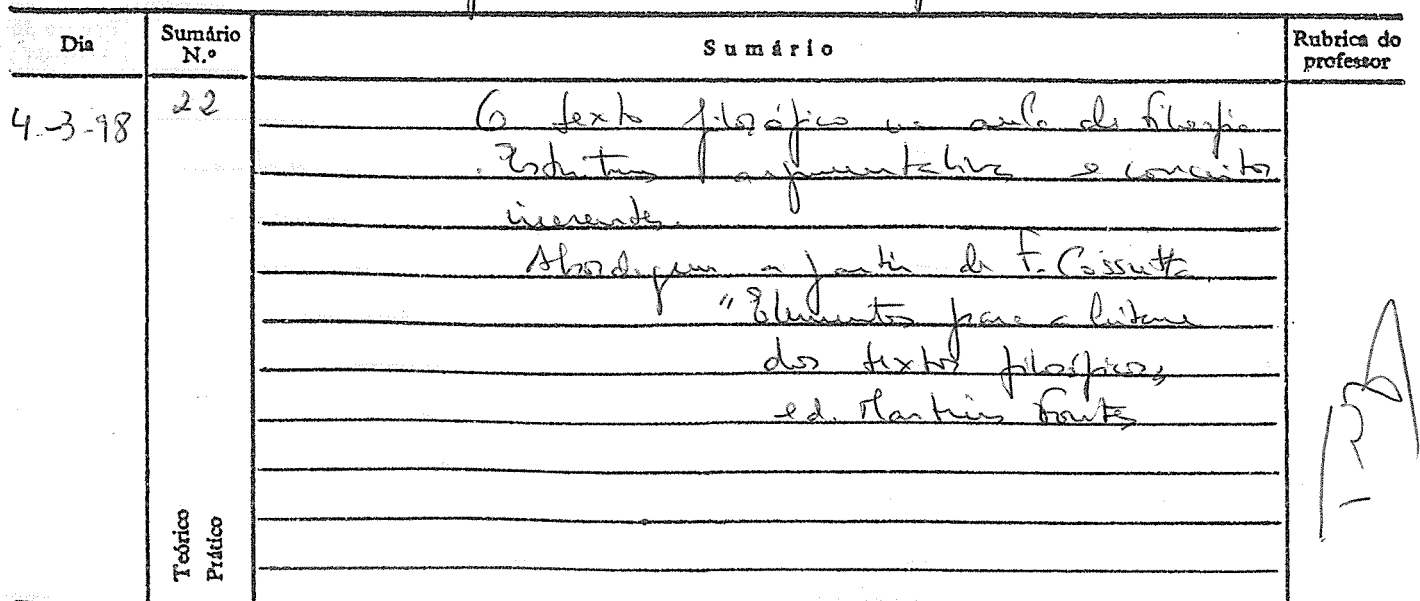 Dia
Sumário N.º
Sumário
Rubrica do professor
4-3-98
22
O texto filosófico na aula de filosofia
. Estrutura argumentativa e conceitos
inerentes.
Abordagem a partir de F. Cossutta
"Elementos para a leitura
dos textos filosóficos,
ed. Martins Fontes
Teórico
Prático